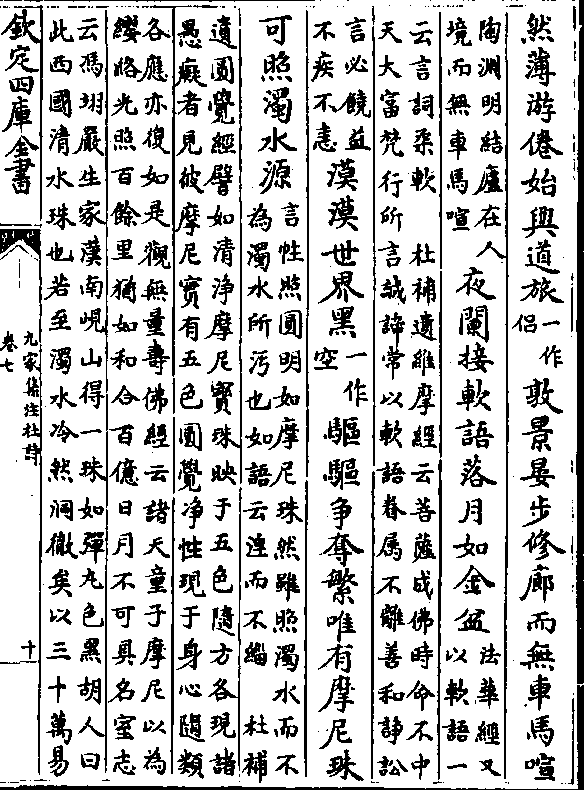 然薄游倦始與道旅一作侶敦景晏步修廊而無車馬喧
陶淵明結廬在人
境而無車馬喧
夜闌接軟語落月如金盆
法華經又
以軟語一
云言詞柔軟 杜補遺維摩經云菩薩成佛時命不中
夭大富梵行所言誠諦常以軟語眷属不離善和諍訟
言必饒益
不疾不恚
漠漠世界黑一作空驅驅争奪繁唯有摩尼珠
可照濁水源
言性照圓明如摩尼珠然雖照濁水而不
為濁水所汚也如語云湼而不緇 杜補
遺圓覺經譬如清净摩尼寳珠映于五色隨方各現諸
愚癡者見彼摩尼實有五色圓覺净性現于身心隨類
各應亦復如是觀無量壽佛經云諸天童子摩尼以為
纓絡光照百餘里猶如和合百億日月不可具名室志
云馮翊嚴生家漢南峴山得一珠如彈丸色黑胡人曰
此西國清水珠也若至濁水冷然洞徹矣以三十萬易
欽定四庫全書
九家集注杜詩
卷七
十